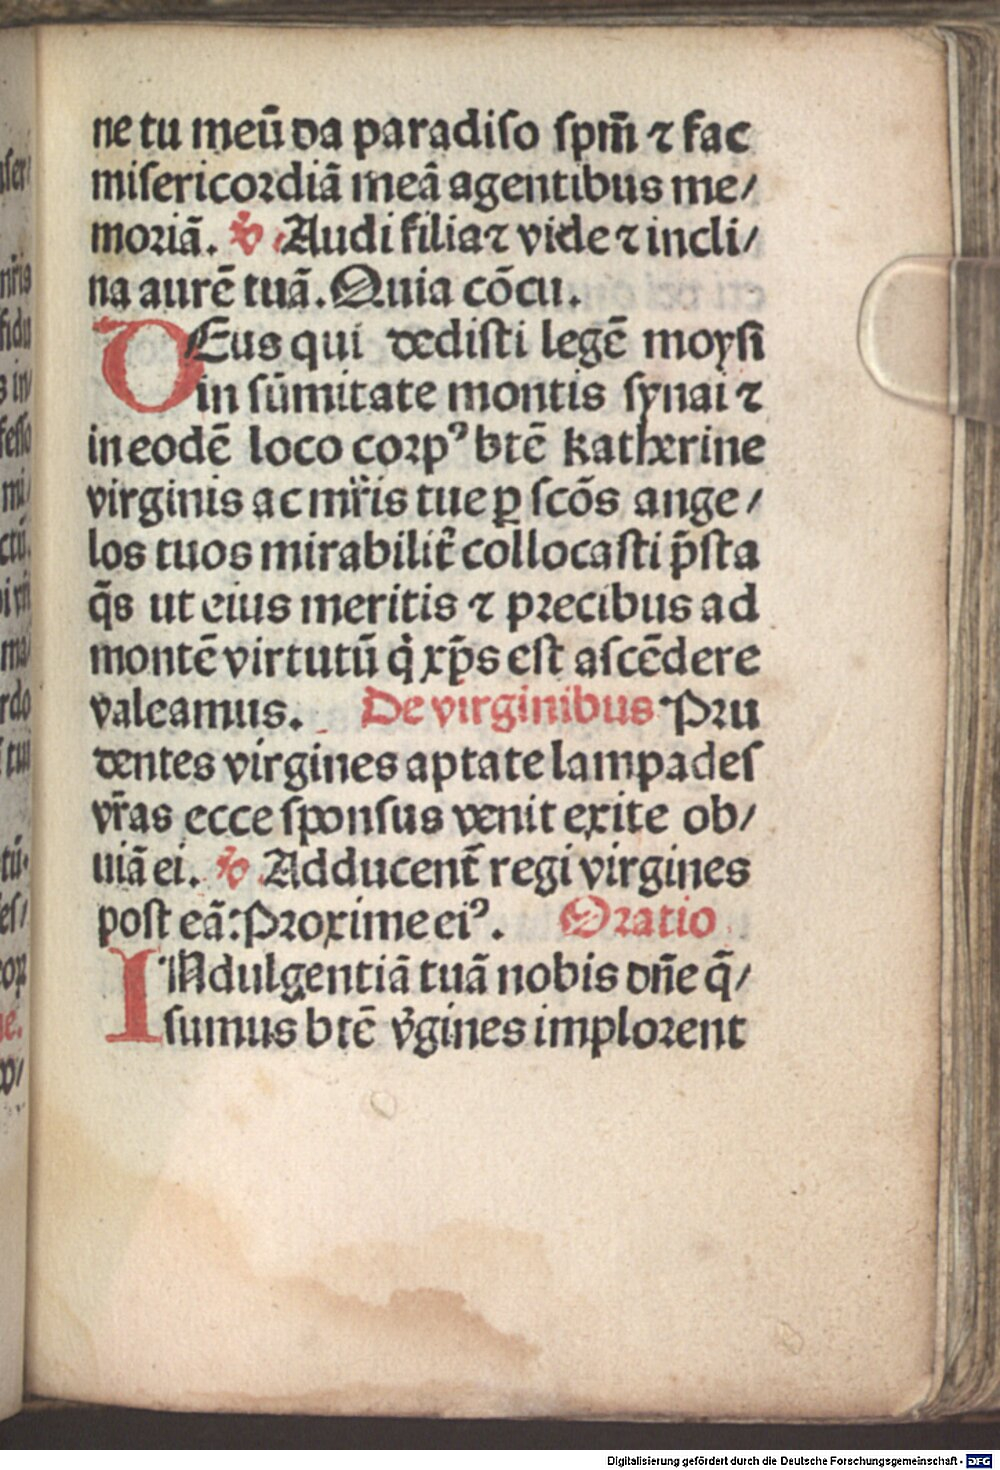 ne tu meū da paradiso spm̄ ⁊ fac
misericordiā meā agentibus me/
moriā. ꝟ Audi filia ⁊ vide ⁊ incli/
na aurē tuā. Quia cōcu.
DEus qui dedisti legē moysi
in sūmitate montis synai ⁊
in eodē loco corpꝰ btē katherine
virginis ac mr̄is tue ꝑ scōs ange/
los tuos mirabilit̄ collocasti p̄sta
q̄s ut eius meritis ⁊ precibus ad
montē virtutū qͥ xp̄s est ascēdere
valeamus. De virginibus Pru
dentes virgines aptate lampades
vr̄as ecce sponsus venit exite ob/
uiā ei. ꝟ Adducent̄ regi virgines
post eā: Proxime eiꝰ. Oratio
INdulgentiā tuā nobis dn̄e q̄/
sumus btē v̓gines implorent
Digitalisierung gefördert durch die Deutsche Forschungsgemeinschaft - DFG